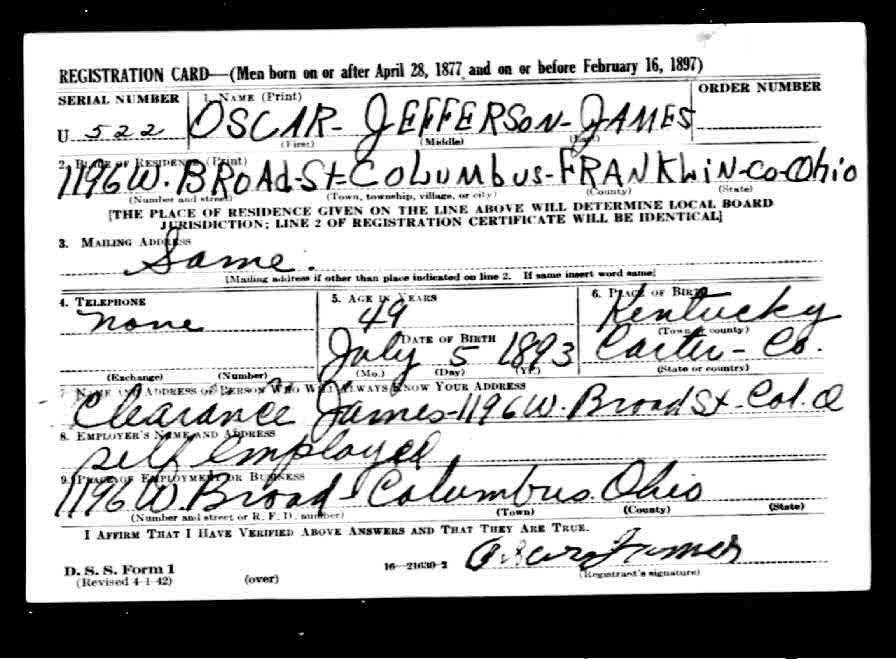 REGISTRATION CARD—(Men born on or after April 28, 1877 and on or before February 16, 1897)
SERIAL NUMBER 1. NAME (Print) ORDER NUMBER
U 522 OSCAR- JEFFERSON- JAMES
(First) (Middle) (Last)
2. PLACE OF RESIDENCE (Print)
1196 W. BROAd-St-COLUMbus-FRANKLiN-Co-Ohio
(Number and street) (Town, township, village, or city) (County) (State)
[THE PLACE OF RESIDENCE GIVEN ON THE LINE ABOVE WILL DETERMINE LOCAL BOARD
JURISDICTION; LINE 2 OF REGISTRATION CERTIFICATE WILL BE IDENTICAL]
3. MAILING ADDRESS
Same.
[Mailing address if other than place indicated on line 2. If same insert word same]
4. TELEPHONE 5. AGE IN YEARS 6. PLACE OF BIRTH
none 49 Kentucky
DATE OF BIRTH (Town or county)
July 5 1893 Carter-Co.
(Exchange) (Number) (Mo.) (Day) (Yr.) (State or country)
7. NAME AND ADDRESS OF PERSON WHO WILL ALWAYS KNOW YOUR ADDRESS
Clearance James-1196 W. Broad St-Col. O
8. EMPLOYER'S NAME AND ADDRESS
self employed
9. PLACE OF EMPLOYMENT OR BUSINESS
1196 W. Broad- Columbus. Ohio
(Number and street or R. F. D. number) (Town) (County) (State)
I AFFIRM THAT I HAVE VERIFIED ABOVE ANSWERS AND THAT THEY ARE TRUE.
D. S. S. Form 1 16—21630-2 Oscar James
(Revised 4-1-42) (over) (Registrant's signature)